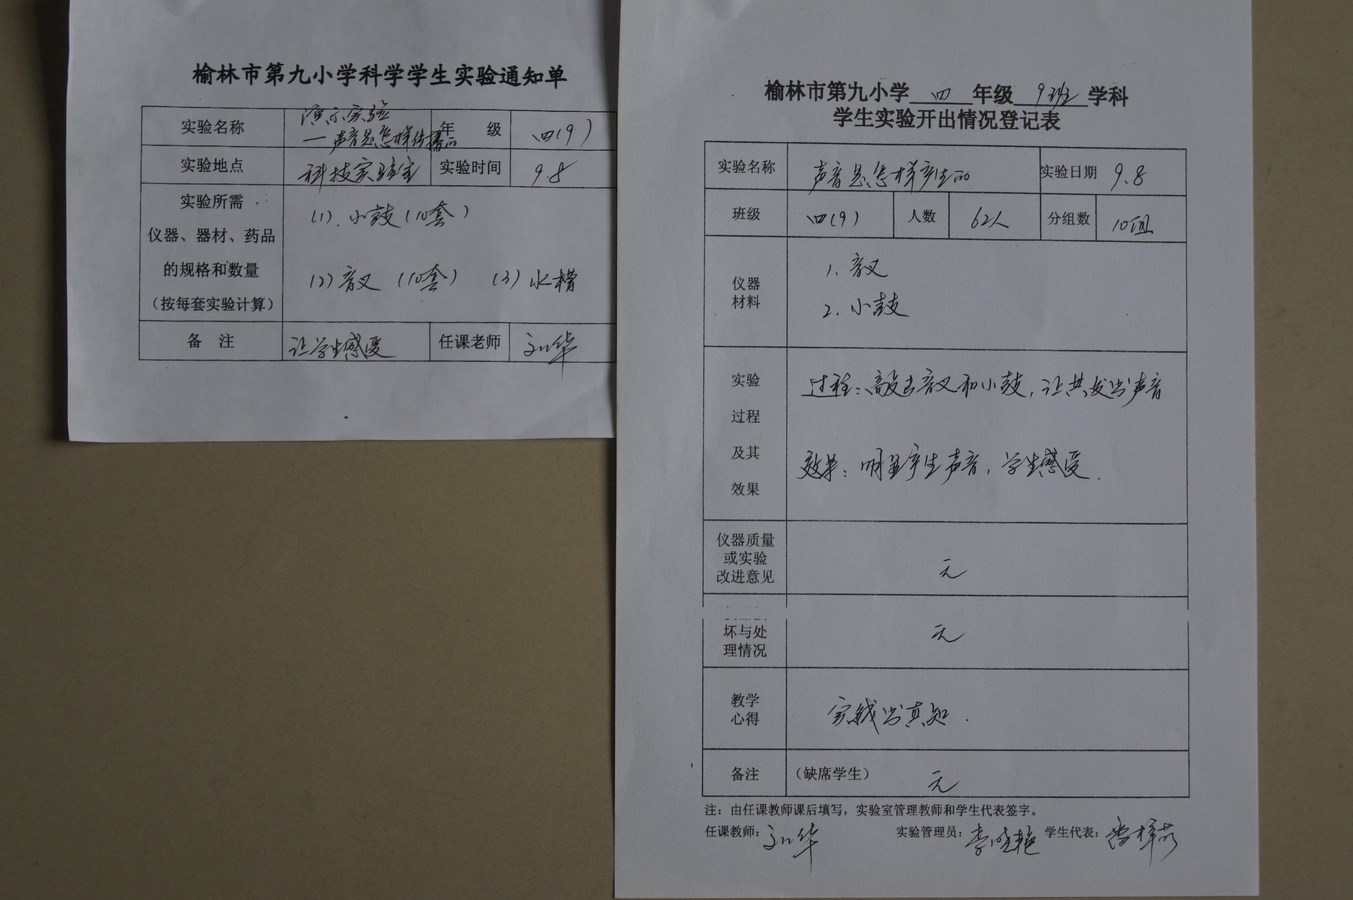 榆林市第九小学科学学生实验通知单
实验名称 演示实验 —声音是怎样传播的 年 级 四(9)
实验地点 科技实验室 实验时间 9.8
实验所需
仪器、器材、药品
的规格和数量
(按每套实验计算)
(1).小鼓(10套)
(2)音叉(10套) (3)水槽
备 注 让学生感受 任课老师 刘华
榆林市第九小学 四 年级 9班 学科
学生实验开出情况登记表
实验名称 声音是怎样产生的 实验日期 9.8
班级 四(9) 人数 62人 分组数 10组
仪器
材料
1.音叉
2.小鼓
实验
过程
及其
效果
过程:敲击音叉和小鼓,让其发出声音
效果:明显产生声音,学生感受.
仪器质量
或实验
改进意见
无
坏与处
理情况
无
教学
心得
实践出真知.
备注 (缺席学生) 无
注:由任课教师课后填写,实验室管理教师和学生代表签字。
任课教师:刘华 实验管理员:李 艳 学生代表: